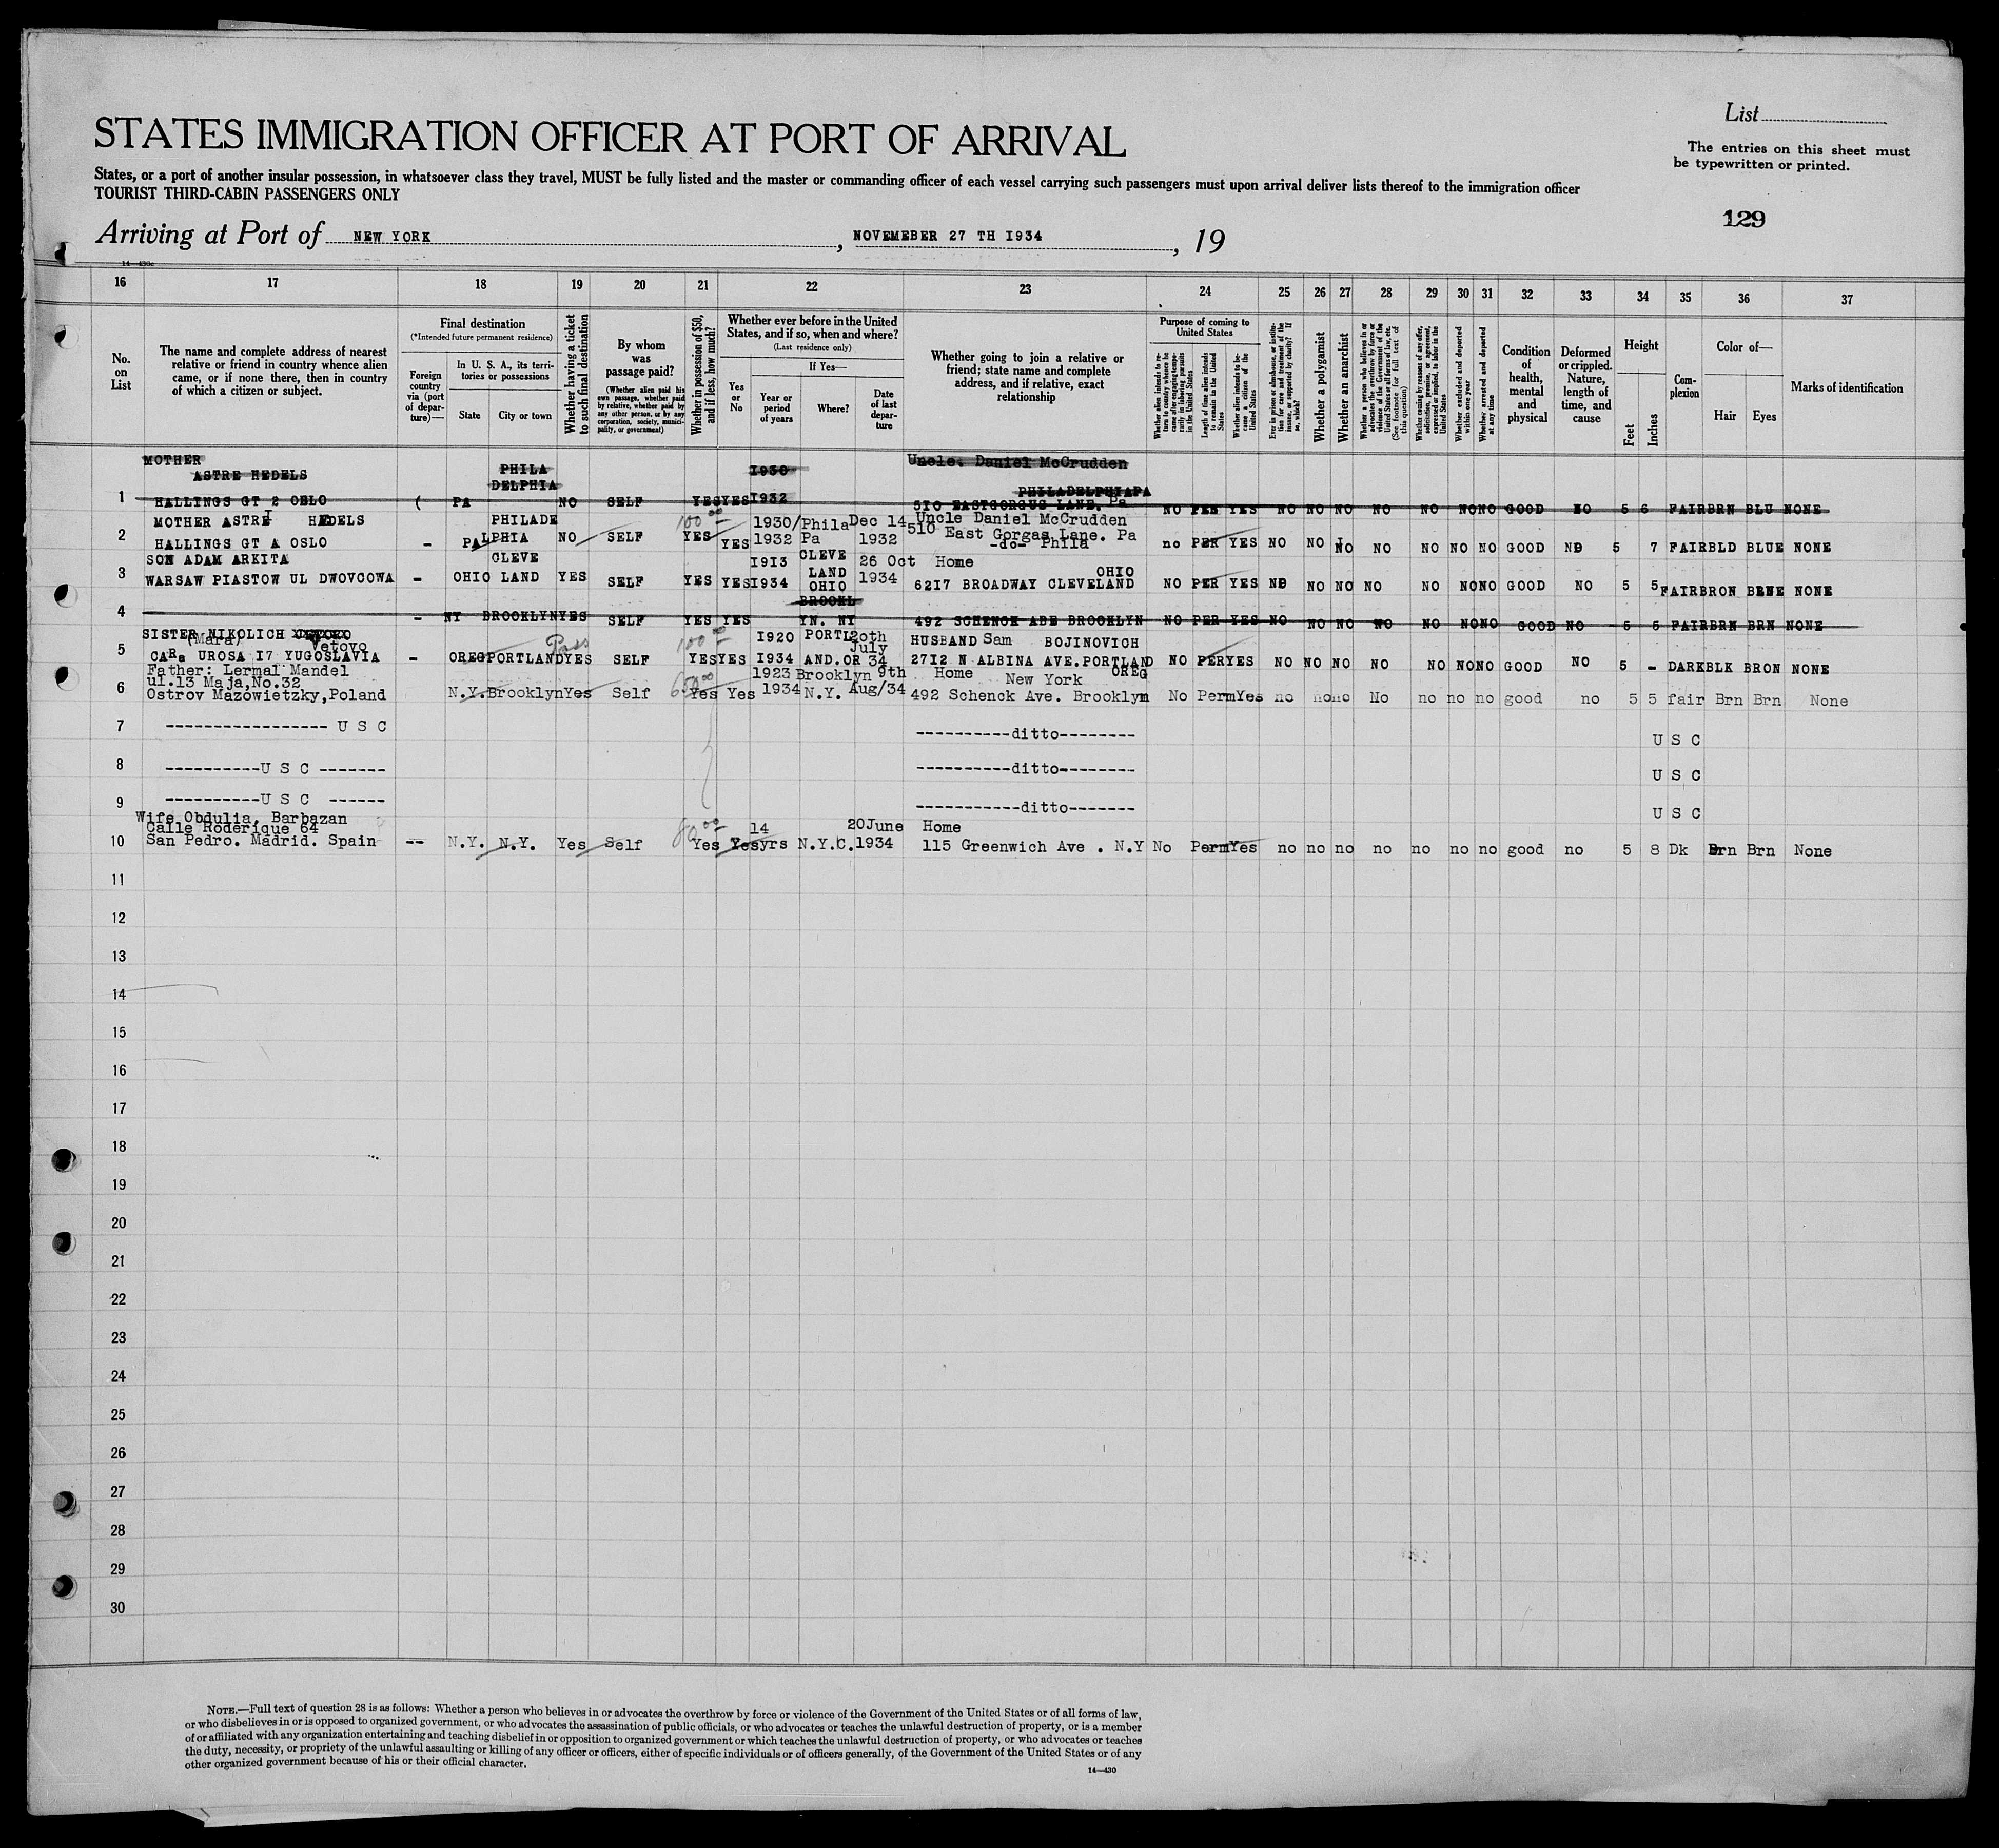 List
The entries on this sheet must
be typewritten or printed.
STATES IMMIGRATION OFFICER AT PORT OF ARRIVAL
States, or a port of another insular possession, in whatsoever class they travel, MUST be fully listed and the master or commanding officer of each vessel carrying such passengers must upon arrival deliver lists thereof to the immigration officer
TOURIST THIRD-CABIN PASSENGERS ONLY
129
Arriving at Port of NEW YORK, NOVEMEBER 27 TH I934, 19
14—430c
16 17 18 19 20 21 22 23 24 25 26 27 28 29 30 31 32 33 34 35 36 37
No. on List
The name and complete address of nearest relative or friend in country whence alien came, or if none there, then in country of which a citizen or subject.
Final destination
(*Intended future permanent residence)
Foreign country via (port of departure)—
In U. S. A., its territories or possessions
State
City or town
Whether having a ticket to such final destination
By whom was passage paid?
(Whether alien paid his own passage, whether paid by relative, whether paid by any other person, or by any corporation, society, municipality, or government)
Whether in possession of $50, and if less, how much?
Whether ever before in the United States, and if so, when and where?
(Last residence only)
Yes or No
If Yes—
Year or period of years
Where?
Date of last departure
Whether going to join a relative or friend; state name and complete address, and if relative, exact relationship
Purpose of coming to United States
Whether alien intends to return to country whence he came after engaging temporarily in laboring pursuits in the United States
Length of time alien intends to remain in the United States
Whether alien intends to become a citizen of the United States
Ever in prison or almshouse, or institution for care and treatment of the insane, or supported by charity? If so, which?
Whether a polygamist
Whether an anarchist
Whether a person who believes in or advocates the overthrow by force or violence of the Government of the United States or all forms of law, etc. (See footnote for full text of this question)
Whether coming by reason of any offer, solicitation, promise, or agreement, expressed or implied, to labor in the United States
Whether excluded and deported within one year
Whether arrested and deported at any time
Condition of health, mental and physical
Deformed or crippled. Nature, length of time, and cause
Height
Feet
Inches
Complexion
Color of—
Hair
Eyes
Marks of identification
MOTHER
ASTRE HEDELS PHILA I930 Uncle. Daniel McCrudden
DELPHIA PHILADELPHIAPA
1 HALLINGS GT 2 OSLO ( PA NO SELF YES YES I932 5I0 EASTGORGUS LANE. Pa NO PER YES NO NO NO NO NO NO NO GOOD NO 5 6 FAIR BRN BLU NONE
MOTHER ASTRI HEDELS PHILADE 100 00 1930/ Phila Dec 14 Uncle Daniel McCrudden
510 East Gorgas Lane. Pa
2 HALLINGS GT A OSLO - PA LPHIA NO SELF YES YES 1932 Pa 1932 -do- Phila no PER YES NO NO NO NO NO NO NO GOOD NO 5 7 FAIR BLD BLUE NONE
SON ADAM ARKITA CLEVE I9I3 CLEVE 26 Oct Home
3 WARSAW PIASTOW UL DWOVCOWA - OHIO LAND YES SELF YES YES I934 LAND OHIO 1934 62I7 BROADWAY CLEVELAND OHIO NO PER YES NO NO NO NO NO NO NO GOOD NO 5 5 FAIR BRON NONE
BROOKL
4 - NY BROOKLYN YES SELF YES YES YN. NY 492 SCHENCK ABE BROOKLYN NO PER YES NO NO NO NO NO NO NO GOOD NO 5 5 FAIR BRN BRN NONE
SISTER NIKOLICH Pass 100 00 I920 PORTL 20th HUSBAND Sam BOJINOVICH
(Mara) Vetovo July
5 CARa UROSA I7 YUGOSLAVIA - OREG PORTLAND YES SELF YES YES I934 AND.OR 34 27I2 N ALBINA AVE.PORTLAND OREG NO PER YES NO NO NO NO NO NO NO GOOD NO 5 - DARK BLK BRON NONE
Father: Lermal Mandel 1923 Brooklyn 9th Home New York
ul.13 Maja,No.32 650 00
6 Ostrov Mazowietzky,Poland N.Y. Brooklyn Yes Self Yes Yes 1934 N.Y. Aug/34 492 Schenck Ave. Brooklyn No Perm Yes no no no No no no no good no 5 5 fair Brn Brn None
7 ----------------- U S C ----------ditto-------- U S C
8 ----------U S C ------- ----------ditto-------- U S C
9 ----------U S C ------ -----------ditto------- U S C
Wife Obdulia. Barbazan
Calle Roderique 64 80 00 14 20June Home
10 San Pedro. Madrid. Spain -- N.Y. N.Y. Yes Self Yes Yes yrs N.Y.C. 1934 115 Greenwich Ave . N.Y No Perm Yes no no no no no no no good no 5 8 Dk Brn Brn None
11
12
13
14
15
16
17
18
19
20
21
22
23
24
25
26
27
28
29
30
NOTE.—Full text of question 28 is as follows: Whether a person who believes in or advocates the overthrow by force or violence of the Government of the United States or of all forms of law,
or who disbelieves in or is opposed to organized government, or who advocates the assassination of public officials, or who advocates or teaches the unlawful destruction of property, or is a member
of or affiliated with any organization entertaining and teaching disbelief in or opposition to organized government or which teaches the unlawful destruction of property, or who advocates or teaches
the duty, necessity, or propriety of the unlawful assaulting or killing of any officer or officers, either of specific individuals or of officers generally, of the Government of the United States or of any
other organized government because of his or their official character.
14—430